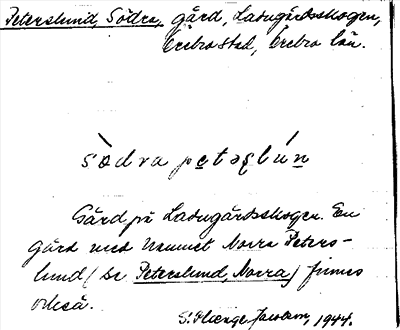 Peterslund, Södra, gård, Ladugårdsskogen,
Örebro stad, Örebro län.
sòdra pe̲təʂlún̲
Gård på Ladugårdsskogen. En
gård med namnet Norra Peters-
lund (se Peterslund, Norra) finnes
också.
1944.